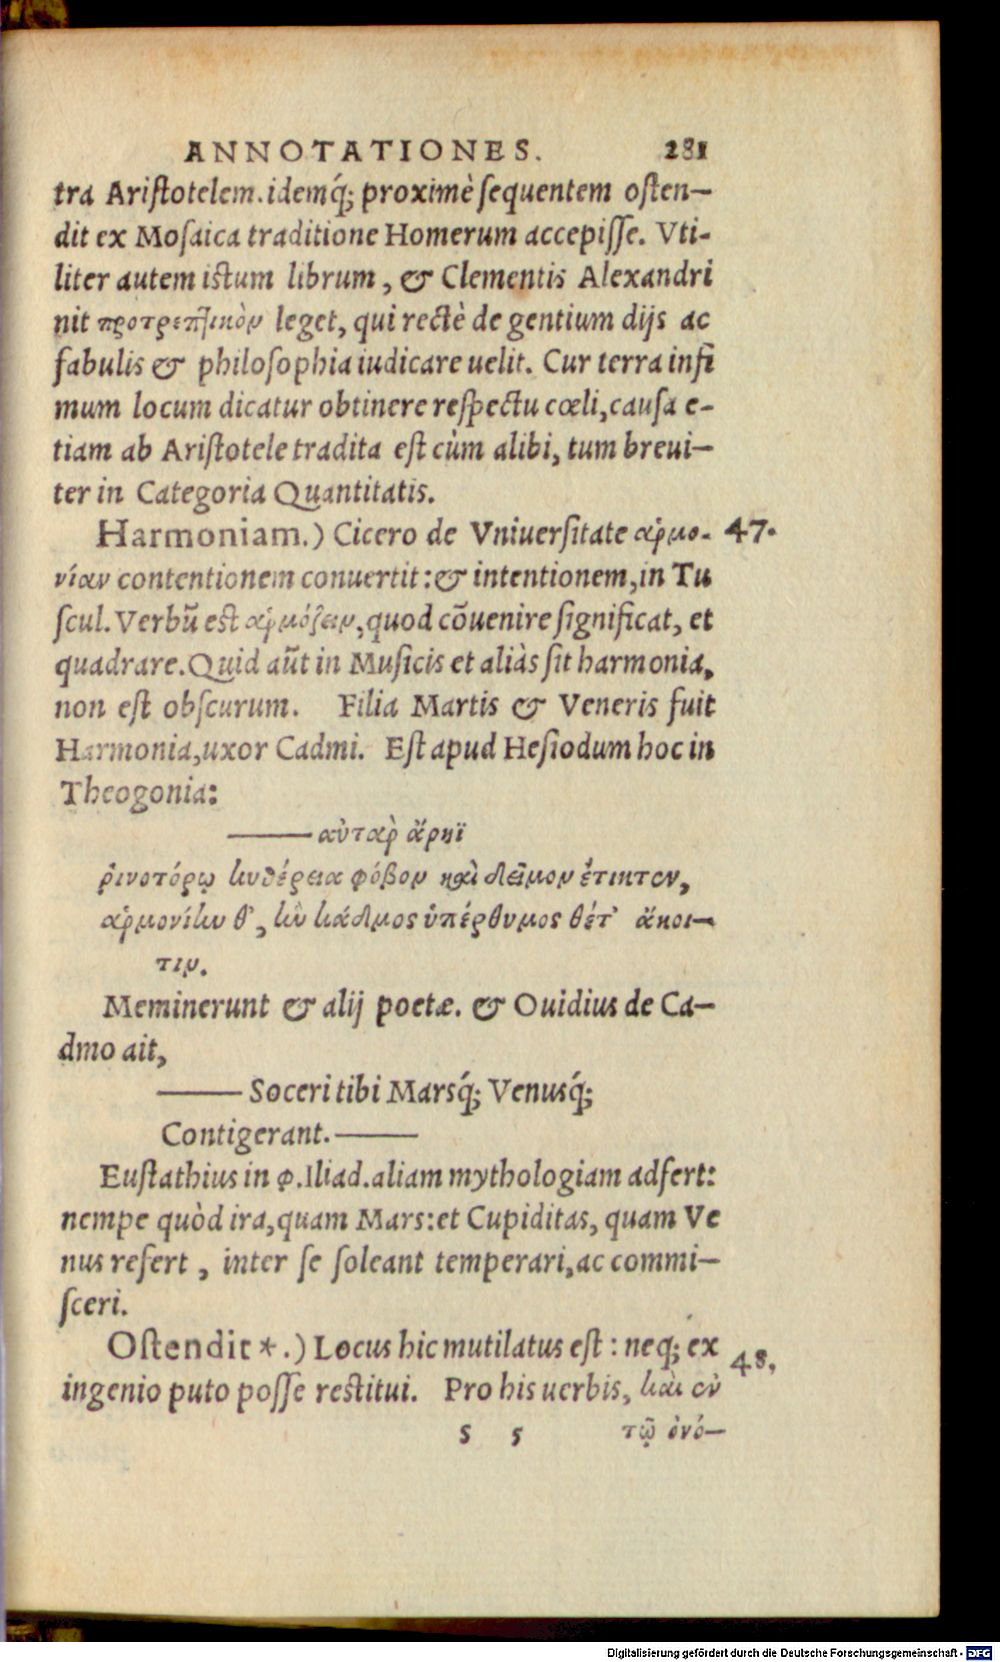 ANNOTATIONES. 281
tra Aristotelem. idemq́; proximè sequentem osten-
dit ex Mosaica traditione Homerum accepisse. Vti-
liter autem istum librum, & Clementis Alexandri
nit προτρεπτικὸν leget, qui rectè de gentium dijs ac
fabulis & philosophia iudicare uelit. Cur terra infi
mum locum dicatur obtinere respectu cœli, causa e-
tiam ab Aristotele tradita est cùm alibi, tum breui-
ter in Categoria Quantitatis.
Harmoniam.) Cicero de Vniuersitate ἁρμο- 47.
νίαν contentionem conuertit: & intentionem, in Tu
scul. Verbũ est ἁρμόζειν, quod cõuenire significat, et
quadrare. Quid aũt in Musicis et aliàs sit harmonia,
non est obscurum. Filia Martis & Veneris fuit
Harmonia, uxor Cadmi. Est apud Hesiodum hoc in
Theogonia:
—— αὐτὰρ ἄρηϊ
ῥινοτόρῳ κυθέρεια φόβον καὶ δεῖμον ἔτικτεν,
ἁρμονίην θ᾽, ἣν κάδμος ὑπέρθυμος θέτ᾽ ἄκοι-
τιν.
Meminerunt & alij poetæ. & Ouidius de Ca-
dmo ait,
—— Soceri tibi Marsq́; Venusq́;
Contigerant. ——
Eustathius in φ. Iliad. aliam mythologiam adfert:
nempe quòd ira, quam Mars: et Cupiditas, quam Ve
nus refert, inter se soleant temperari, ac commi-
sceri.
Ostendit *.) Locus hic mutilatus est: neq; ex 48,
ingenio puto posse restitui. Pro his uerbis, καὶ ἐν
s 5 τῷ ὀνό-
Digitalisierung gefördert durch die Deutsche Forschungsgemeinschaft - DFG